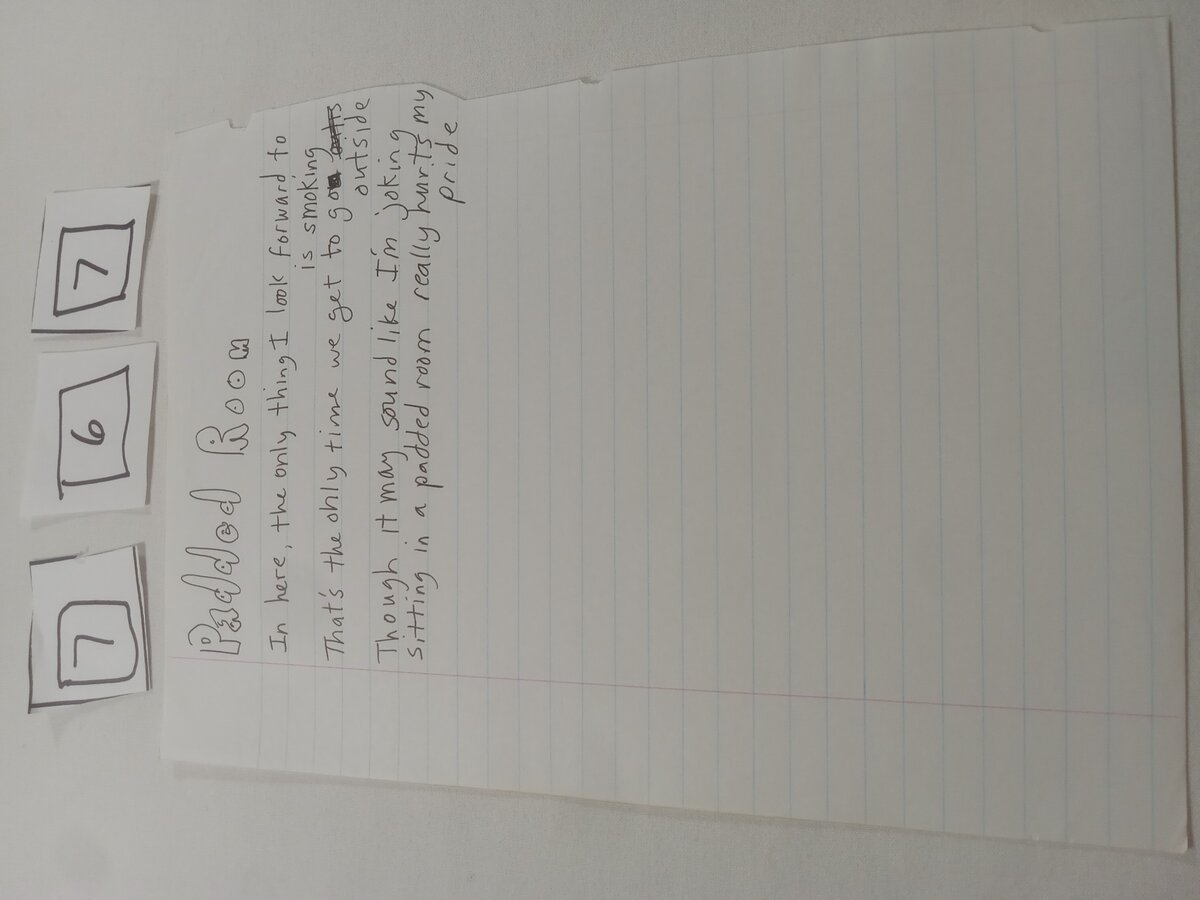 7 6 7
Padded Room
In here, the only thing I look forward to
is smoking
That's the only time we get to go
outside
Though it may sound like I'm joking
sitting in a padded room really hurts my
pride